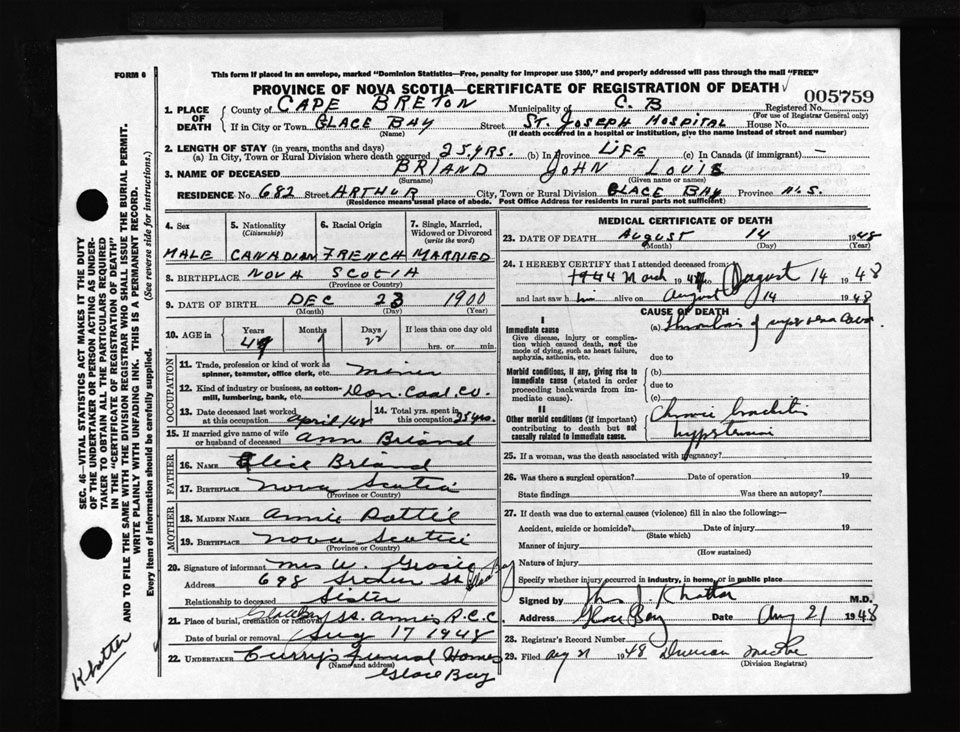 FORM 6
This form if placed in an envelope, marked "Dominion Statistics—Free, penalty for improper use $300," and properly addressed will pass through the mail "FREE"
PROVINCE OF NOVA SCOTIA—CERTIFICATE OF REGISTRATION OF DEATH
005759
1. PLACE OF DEATH
County of CAPE BRETON Municipality of C. B Registered No.
(For use of Registrar General only)
If in City or Town GLACE BAY Street ST. JOSEPH HOSPITAL House No.
(Name) (If death occurred in a hospital or institution, give the name instead of street and number)
2. LENGTH OF STAY (in years, months and days)
(a) In City, Town or Rural Division where death occurred 25 YRS. (b) In Province LIFE (c) In Canada (if immigrant) —
3. NAME OF DECEASED BRIAND JOHN LOUIS
(Surname) (Given name or names)
RESIDENCE No. 682 Street ARTHUR City, Town or Rural Division GLACE BAY Province N.S.
(Residence means usual place of abode. Post Office Address for residents in rural parts not sufficient)
4. Sex 5. Nationality (Citizenship) 6. Racial Origin 7. Single, Married, Widowed or Divorced (write the word)
MALE CANADIAN FRENCH MARRIED
8. BIRTHPLACE NOVA SCOTIA
(Province or Country)
9. DATE OF BIRTH DEC 23 1900
(Month) (Day) (Year)
10. AGE in Years Months Days If less than one day old
22 hrs. or min.
OCCUPATION
11. Trade, profession or kind of work as spinner, teamster, office clerk, etc. Miner
12. Kind of industry or business, as cotton-mill, lumbering, bank, etc. Dom. Coal Co.
13. Date deceased last worked at this occupation April 1948
14. Total yrs. spent in this occupation 25 yrs.
15. If married give name of wife or husband of deceased Ann Briand
FATHER
16. NAME Briand
17. BIRTHPLACE Nova Scotia
(Province or Country)
MOTHER
18. MAIDEN NAME Annie
19. BIRTHPLACE Nova Scotia
(Province or Country)
20. Signature of informant Mrs W.
Address 698 Arthur St Glace Bay
Relationship to deceased Sister
21. Place of burial, cremation or removal Glace Bay St. Annes R.C.C.
Date of burial or removal Aug 17 1948
22. UNDERTAKER Curry's Funeral Home
(Name and address)
Glace Bay
MEDICAL CERTIFICATE OF DEATH
23. DATE OF DEATH AUGUST 14 1948
(Month) (Day) (Year)
24. I HEREBY CERTIFY that I attended deceased from:
March 19 to August 14 1948
and last saw him alive on August 14 1948
CAUSE OF DEATH
I
Immediate cause
Give disease, injury or complication which caused death, not the mode of dying, such as heart failure, asphyxia, asthenia, etc.
(a) Thrombosis of
due to
Morbid conditions, if any, giving rise to immediate cause (stated in order proceeding backwards from immediate cause).
(b)
due to
(c)
II
Other morbid conditions (if important) contributing to death but not causally related to immediate cause.
Chronic bronchitis
25. If a woman, was the death associated with pregnancy?
26. Was there a surgical operation? Date of operation 19
State findings Was there an autopsy?
27. If death was due to external causes (violence) fill in also the following:—
Accident, suicide or homicide? Date of injury 19
(State which)
Manner of injury
(How sustained)
Nature of injury
Specify whether injury occurred in industry, in home, or in public place
Signed by Jhn J. Khattar M.D.
Address Glace Bay Date Aug 21 1948
28. Registrar's Record Number
29. Filed Aug 21 1948 Duncan
(Division Registrar)
SEC. 46—VITAL STATISTICS ACT MAKES IT THE DUTY OF THE UNDERTAKER OR PERSON ACTING AS UNDERTAKER TO OBTAIN ALL THE PARTICULARS REQUIRED IN THE "CERTIFICATE OF REGISTRATION OF DEATH"
AND TO FILE THE SAME WITH THE DIVISION REGISTRAR WHO SHALL ISSUE THE BURIAL PERMIT.
WRITE PLAINLY WITH UNFADING INK. THIS IS A PERMANENT RECORD.
Every item of information should be carefully supplied. (See reverse side for instructions.)
Khattar